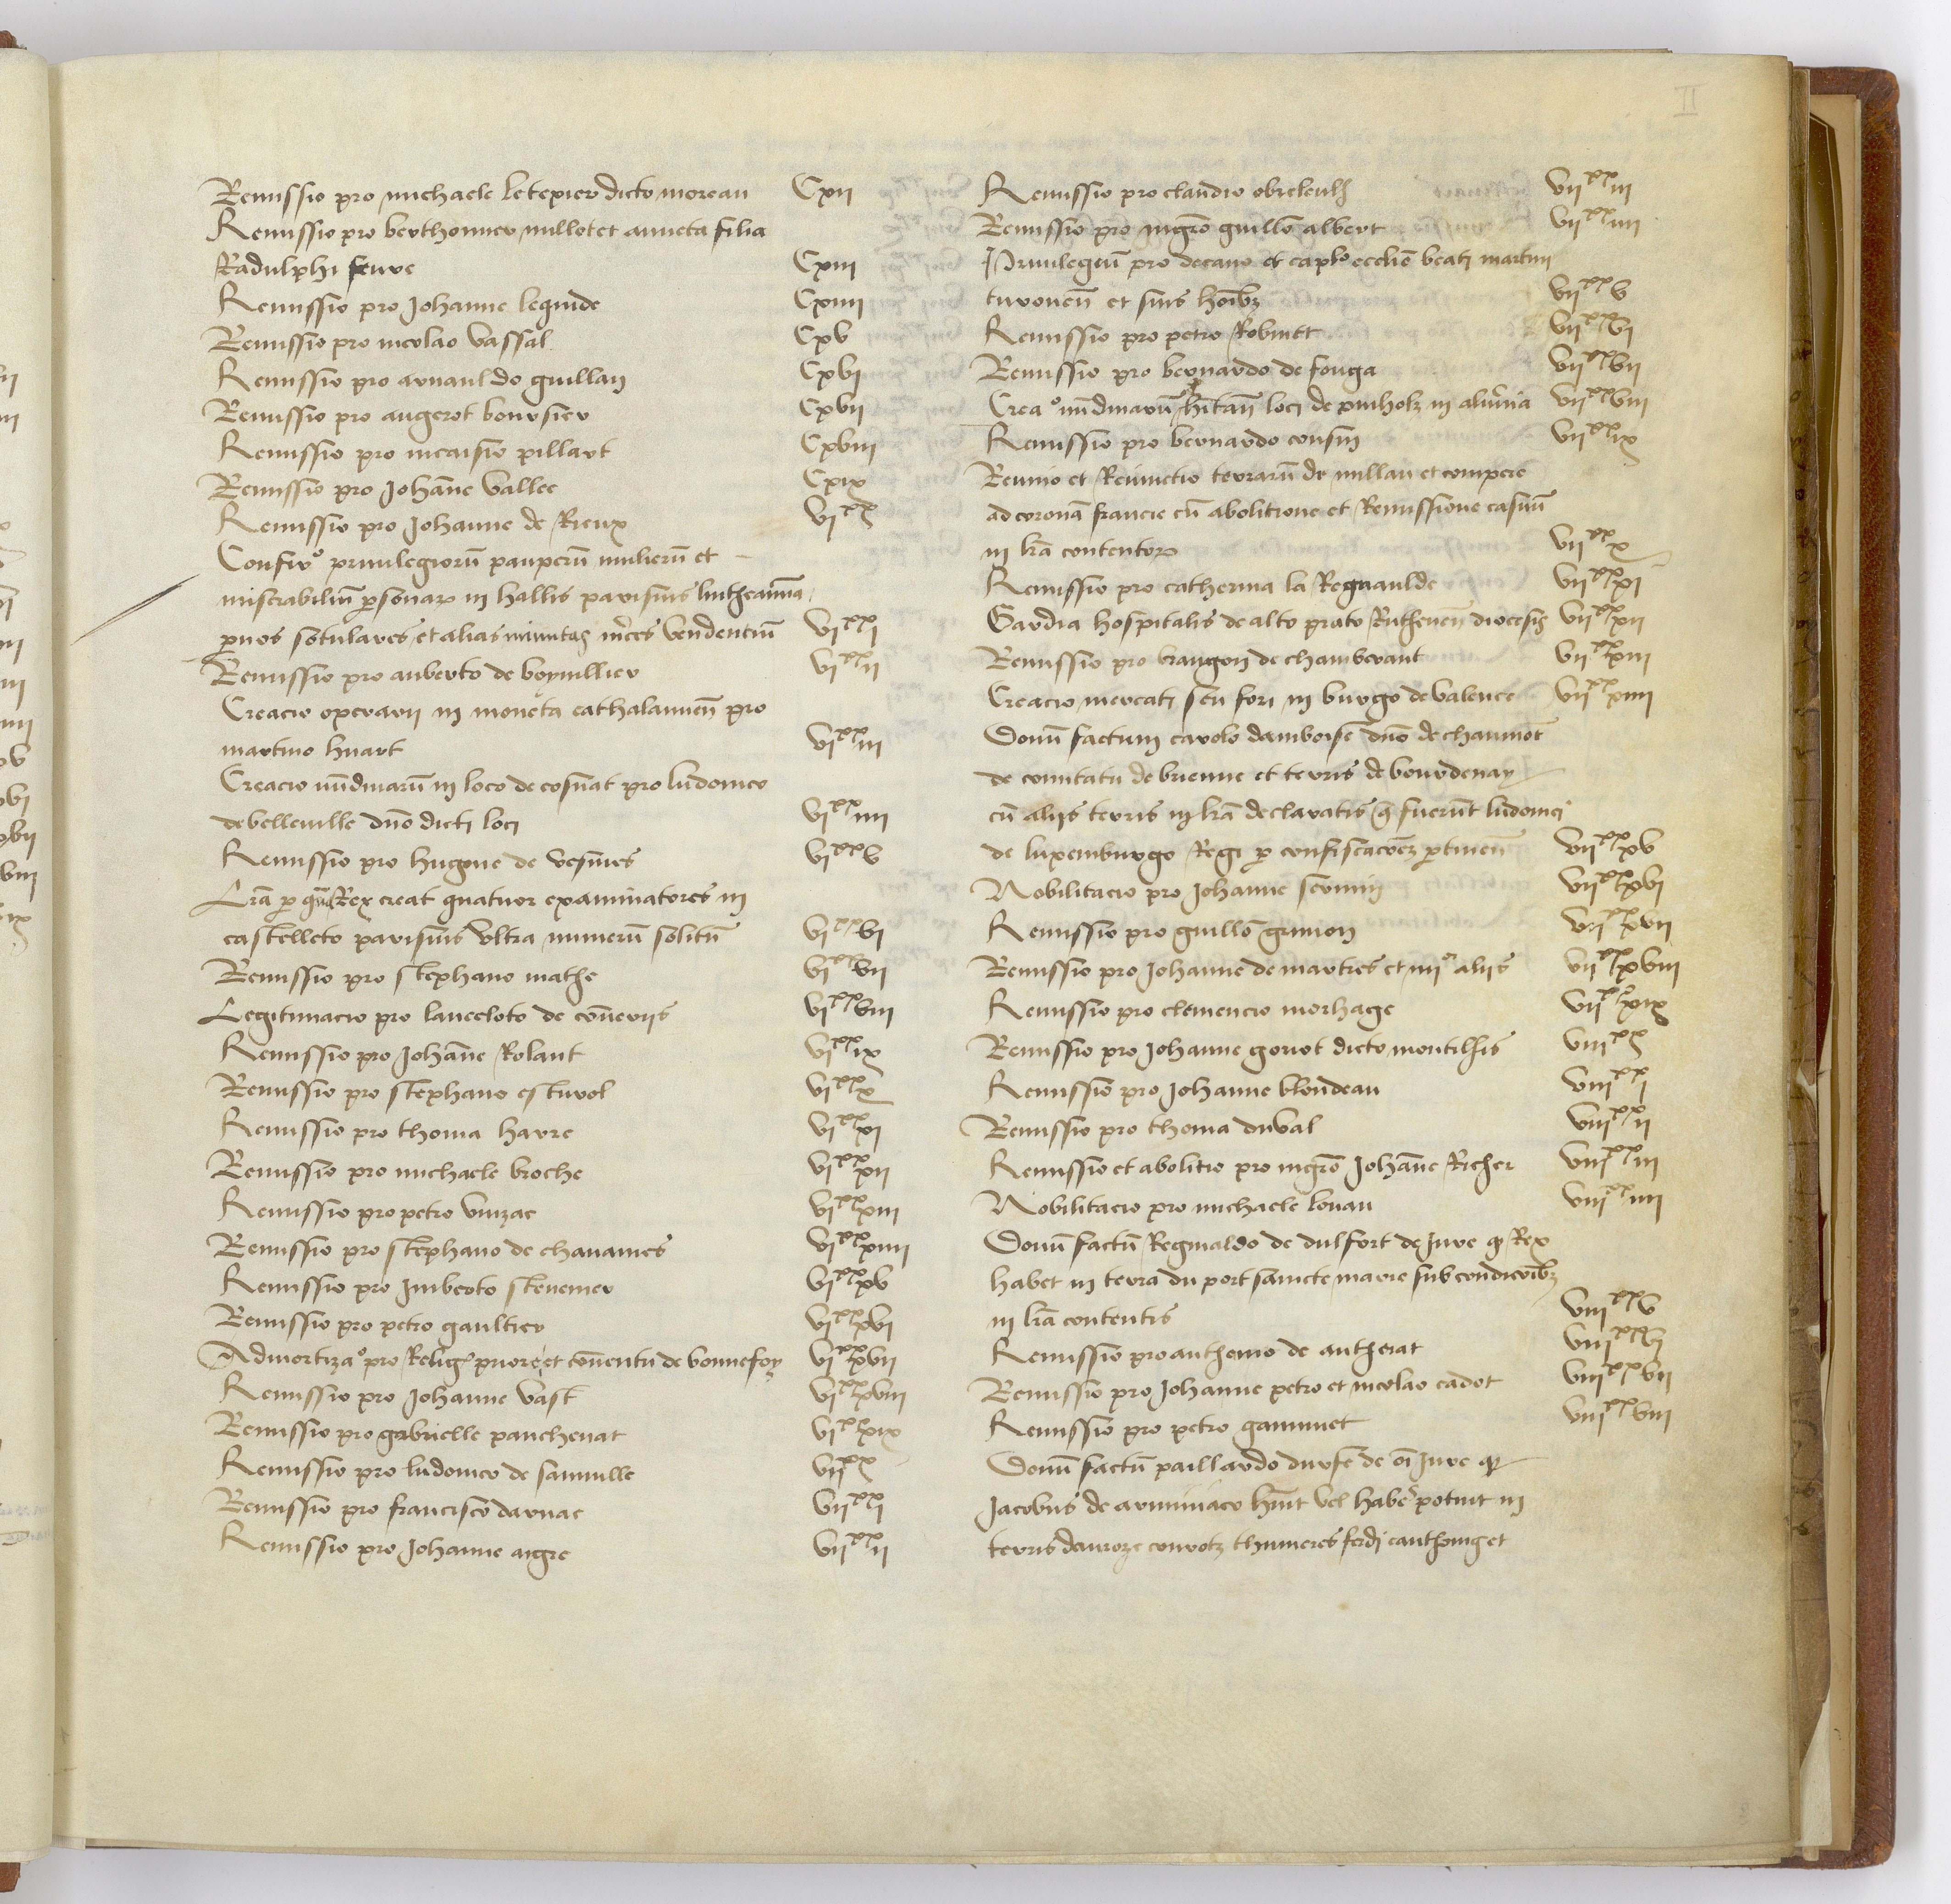 II
Remissio pro michaele letexier dicto moreau Cxii
Remissio pro berthomier millotet anneta filia
Radulphi feure Cxiii
Remissio pro Johanne lequide Cxiiii
Remissio pro nicolao vassal Cxv
Remissio pro arnauldo guillan Cxvi
Remissio pro augerot boursier Cxvii
Remissio pro nicaisio pillart Cxviii
Remissio pro Johãne vallee Cxix
Remissio pro Johanne de Rieux vi^xx
Confir^o priuilegiorũ pauperũ mulierũ et
miserabiliũ ꝑsonaꝝ in hallis parisiũs lintheamina
ꝑuos sotulares et alias minutas m̃ces vendentiũ vi^xx i
Remissio pro auberto de voyuillier vi^xx ii
Creacio operarii in moneta cathalaunen̄ pro
martino huart vi^xx iii
Creacio nũdinarũ in loco de cosnat pro ludouico
de belleuille dño dicti loci vi^xx iiii
Remissio pro hugone de vesmes vi^xx v
Lrã ꝑ quã Rex creat quatuor examinatores in
castelleto parisiũs vltra numerũ solitũ vi^xx vi
Remissio pro stephano mathe vi^xx vii
Legitimacio pro lanceloto de cõueriis vi^xx viii
Remissio pro Johãne Rolant vi^xx ix
Remissio pro stephano esturol vi^xx x
Remissio pro thoma havre vi^xx xi
Remissio pro michaele broche vi^xx xii
Remissio pro petro vinzac vi^xx xiii
Remissio pro stephano de chauames vi^xx xiiii
Remissio pro Imberto steuenier vi^xx xv
Remissio pro petro gaultier vi^xx xvi
Admortiza^o pro Religˢ priore et cõuentu de bonnefoy vi^xx xvii
Remissio pro Johanne vast vi^xx xviii
Remissio pro gabrielle panchenat vi^xx xix
Remissio pro ludouico de sainuille vii^xx
Remissio pro francisco darnac vii^xx i
Remissio pro Johanne aigre vii^xx ii
Remissio pro claudio vii^xx iii
Remissio pro mgrõ guillõ albert vii^xx iiii
Priuilegiũ pro decano et caplo ecclie beati martini
turonen̄ et suis hoĩbꝫ vii^xx v
Remissio pro petro Robinet vii^xx vi
Remissio pro bernardo de fonga vii^xx vii
Crea^o nũdinarũ pro hĩtañ loci de in aluernia vii^xx viii
Remissio pro bernardo cousin vii^xx ix
Reunio et Reiũctio terrarũ de millau et compere
ad coronã francie cũ abolitione et Remissione casuũ
in lrã contentoꝝ vii^xx x
Remissio pro catherina la Regnaulde vii^xx xi
Gardia hospitalis de alto prato Ruthenen̄ diocesis vii^xx xii
Remissio pro brangon de chamberant vii^xx xiii
Creacio mercati seu fori in burgo de valence vii^xx xiiii
Donũ factum carolo damboise dño de chaumõt
de comitatu de brienne et terris de bourdenay
cũ aliis terris in lrã declaratis q̃ fuerũt ludouici
de luxemburgo Regi ꝑ confiscacõeꝫ ꝑtinen̄ vii^xx xv
Nobilitacio pro Johanne seruin vii^xx xvi
Remissio pro guillõ grimon vii^xx xvii
Remissio pro Johanne de martres et iiii^or aliis vii^xx xviii
Remissio pro clemencio morhage vii^xx xix
Remissio pro Johanne gouot dicto montilhis viii^xx
Remissio pro Johanne blondeau viii^xx i
Remissio pro thoma duval viii^xx ii
Remissio et abolitio pro mgrõ Johãne Richer viii^xx iii
Nobilitacio pro michaele louau viii^xx iiii
Donũ factũ Reginaldo de dulfort de iure qđ Rex
habet in terra du port saincte marie sub condicõibꝫ
in lrã contentis viii^xx v
Remissio pro anthonio de autherat viii^xx vi
Remissio pro Johanne petro et nicolao cadot viii^xx vii
Remissio pro petro gaminet viii^xx viii
Donũ factũ paillardo durfe de oĩ iure qđ
Jacobus de arminiaco hũit vel habẽ potuit in
terris